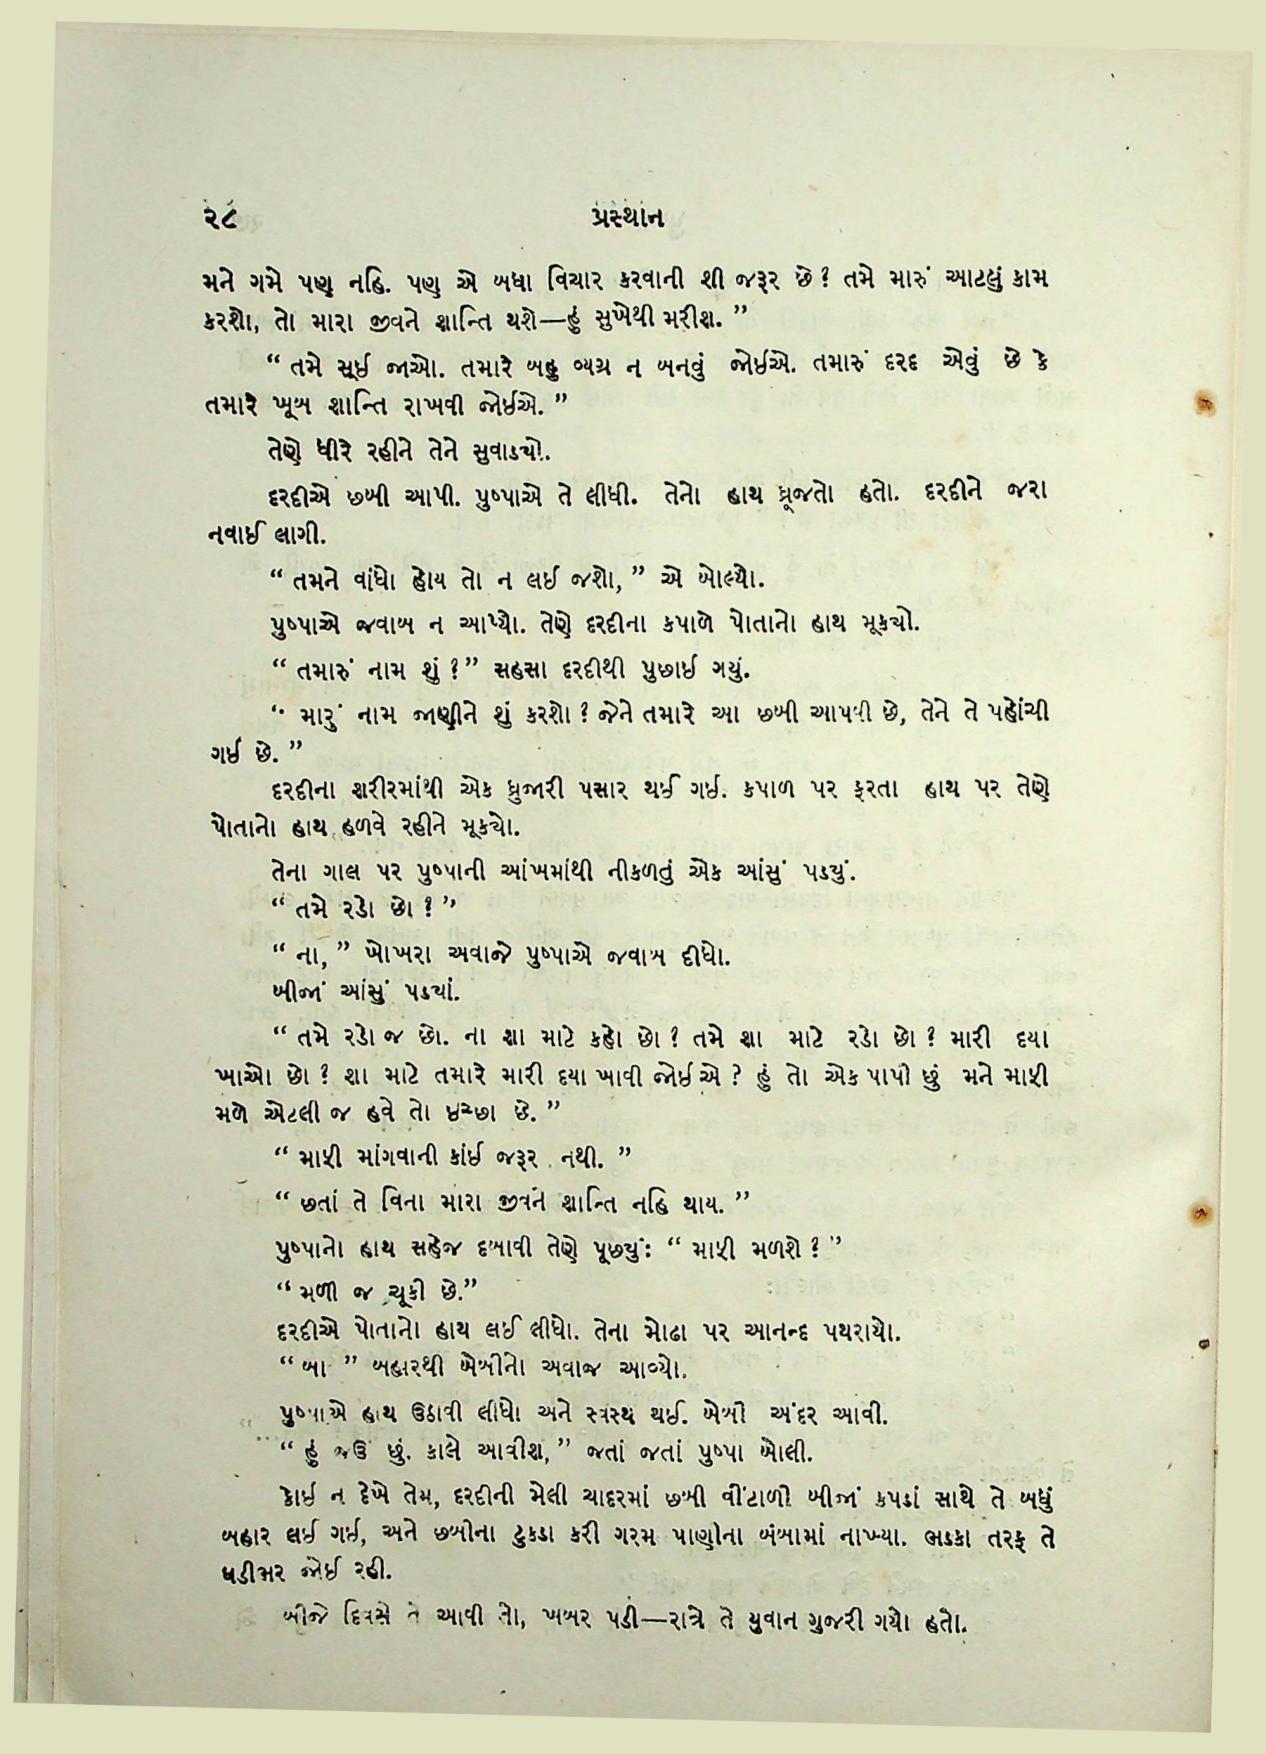 ૨૮
પ્રસ્થાન
મને ગમે પણ નહિ. પણ એ બધા વિચાર કરવાની શી જરૂર છે? તમે મારું આટલું કામ
કરશો, તો મારા જીવને શાન્તિ થશે—હું સુખેથી મરીશ.”
“ તમે સૂઈ જાઓ. તમારે બહુ વ્યગ્ર ન બનવું જોઈએ. તમારું દરદ એવું છે કે
તમારે ખૂબ શાન્તિ રાખવી જોઈએ.”
તેણે ધીરે રહીને તેને સુવાડ્યો.
દરદીએ છબી આપી. પુષ્પાએ તે લીધી. તેનો હાથ ધ્રૂજતો હતો. દરદીને જરા
નવાઈ લાગી.
“ તમને વાંધો હોય તો ન લઈ જશો,” એ બોલ્યો.
પુષ્પાએ જવાબ ન આપ્યો. તેણે દરદીના કપાળે પોતાનો હાથ મૂક્યો.
“ તમારું નામ શું ?” સહસા દરદીથી પુછાઈ ગયું.
“ મારું નામ જાણીને શું કરશો ? જેને તમારે આ છબી આપવી છે, તેને તે પહોંચી
ગઈ છે.”
દરદીના શરીરમાંથી એક ધ્રુજારી પસાર થઈ ગઈ. કપાળ પર ફરતા હાથ પર તેણે
પોતાનો હાથ હળવે રહીને મૂક્યો.
તેના ગાલ પર પુષ્પાની આંખમાંથી નીકળતું એક આંસું પડ્યું.
“ તમે રડો છો ?”
“ ના,” ખોખરા અવાજે પુષ્પાએ જવાબ દીધો.
બીજાં આંસું પડ્યાં.
“ તમે રડો જ છો. ના શા માટે કહો છો ? તમે શા માટે રડો છો ? મારી દયા
ખાઓ છો ? શા માટે તમારે મારી દયા ખાવી જોઈએ ? હું તો એક પાપી છું મને માફી
મળે એટલી જ હવે તો ઇચ્છા છે.”
“ માફી માંગવાની કાંઈ જરૂર નથી. ”
“ છતાં તે વિના મારા જીવને શાન્તિ નહિ થાય.”
પુષ્પાનો હાથ સહેજ દબાવી તેણે પૂછ્યું: “ માફી મળશે ?”
“ મળી જ ચૂકી છે.”
દરદીએ પોતાનો હાથ લઈ લીધો. તેના મોઢા પર આનન્દ પથરાયો.
“ બા ” બહારથી બેબીનો અવાજ આવ્યો.
પુષ્પાએ હાથ ઉઠાવી લીધો અને સ્વસ્થ થઈ. બેબી અંદર આવી.
“ હું જઉં છું. કાલે આવીશ,” જતાં જતાં પુષ્પા બોલી.
કોઈ ન દેખે તેમ, દરદીની મેલી ચાદરમાં છબી વીંટાળી બીજાં કપડાં સાથે તે બધું
બહાર લઈ ગઈ, અને છબીના ટુકડા કરી ગરમ પાણીના બંબામાં નાખ્યા. ભડકા તરફ તે
ઘડીભર જોઈ રહી.
બીજે દિવસે તે આવી તો, ખબર પડી—રાત્રે તે યુવાન ગુજરી ગયો હતો.